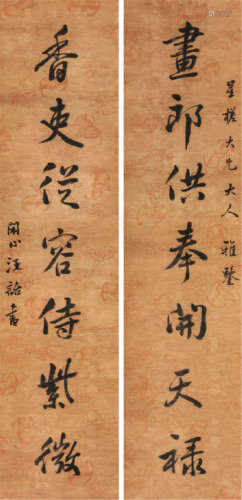 星槎大兄大人 雅鑒
畫郎供奉開天祿
香吏從容侍紫微
閬心汪諮書